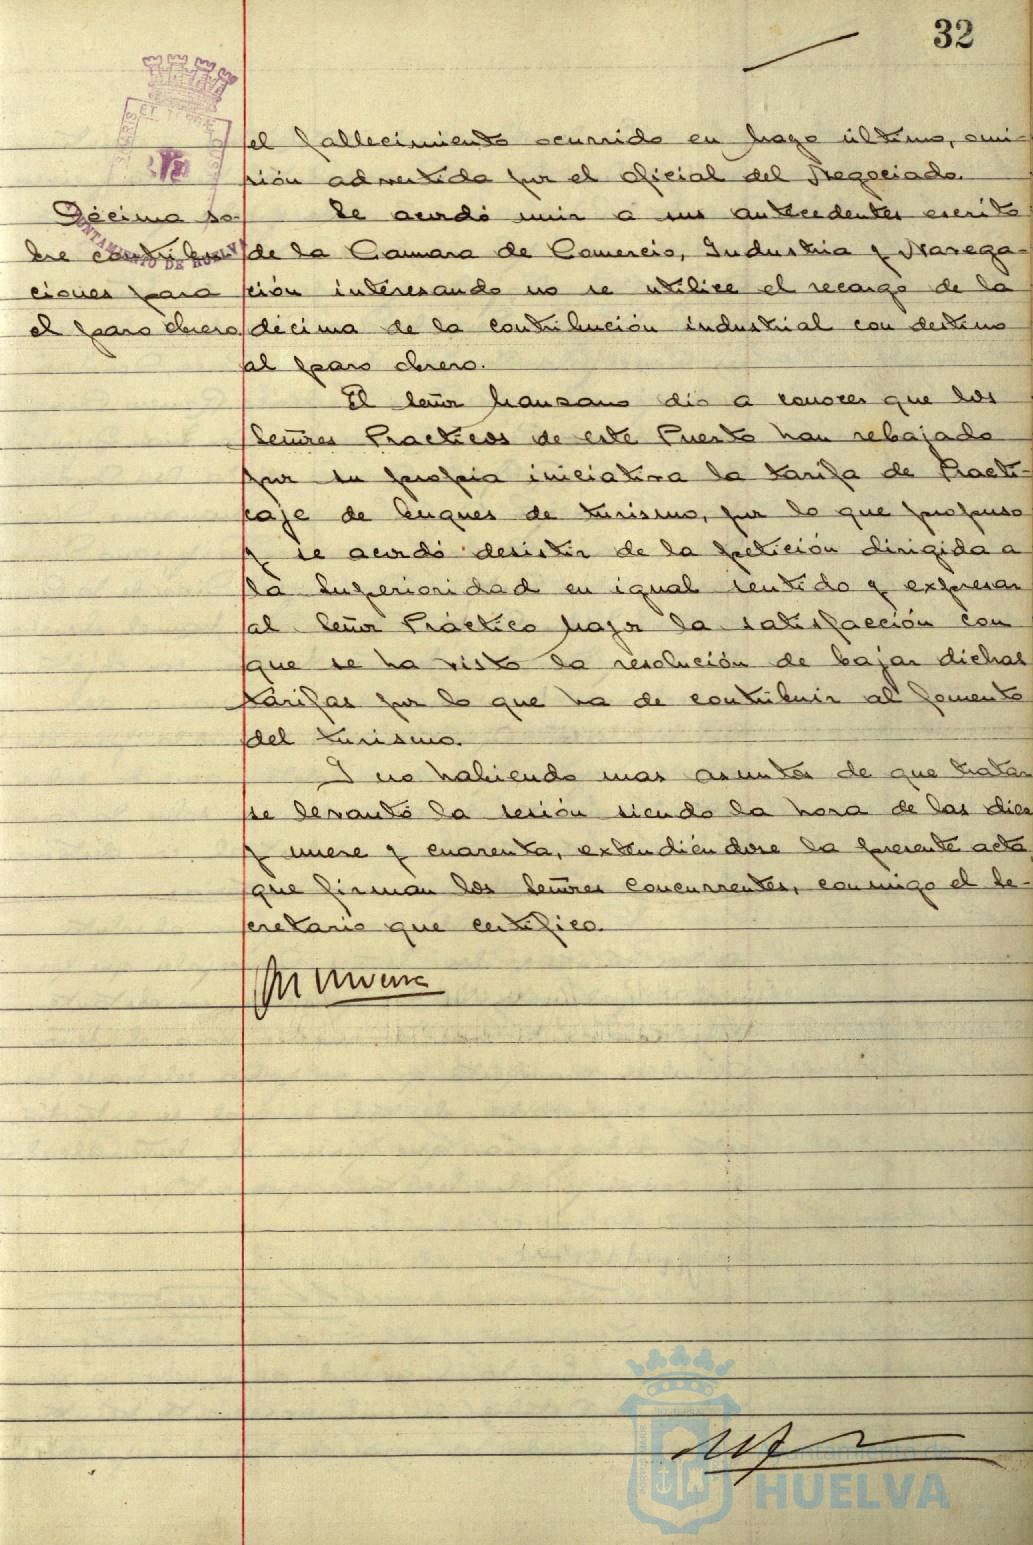 32
el fallecimiento ocurrido en Mayo último, omi-
sión advertida por el oficial del Negociado.
Décima so-
bre contribu
ciones para
el paro obrero
Se acordó unir a sus antecedentes escrito
de la Camara de Comercio, Industria y Navega-
ción interesando no se utilice el recargo de la
décima de la contribución industrial con destino
al paro obrero.
El Señor Manzano dió a conocer que los
Señores Practicos de este Puerto han rebajado
por su propia iniciativa la tarifa de Practi-
caje de buques de turismo, por lo que propuso
y se acordó desistir de la petición dirigida a
la Superioridad en igual sentido y expresar
al Señor Práctico Mayor la satisfacción con
que se ha visto la resolución de bajar dichas
tarifas por lo que ha de contribuir al fomento
del turismo.
I no habiendo mas asuntos de que tratar
se levantó la sesión siendo la hora de las diez
y nueve y cuarenta, extendiéndose la presente acta,
que firman los Señores concurrentes, conmigo el Se-
cretario que certifico.
AYUNTAMIENTO DE HUELVA
Ayuntamiento de
HUELVA